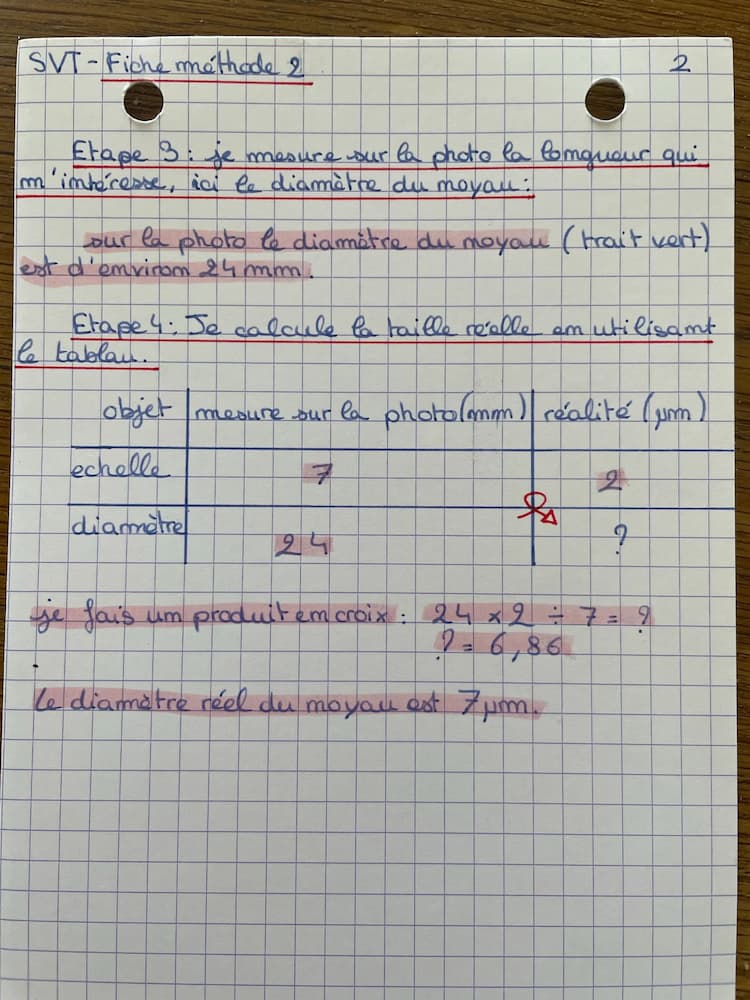 SVT - Fiche méthode 2 2
Etape 3 : je mesure sur la photo la longueur qui
m'intéresse, ici le diamètre du noyau :
sur la photo le diamètre du noyau (trait vert)
est d'environ 24 mm.
Etape 4 : Je calcule la taille réelle en utilisant
le tablau.
objet mesure sur la photo (mm) réalité (µm)
echelle 7 2
diamètre 24 ?
je fais un produit en croix : 24 x 2 ÷ 7 = ?
? = 6,86
le diamètre réel du noyau est 7 µm.